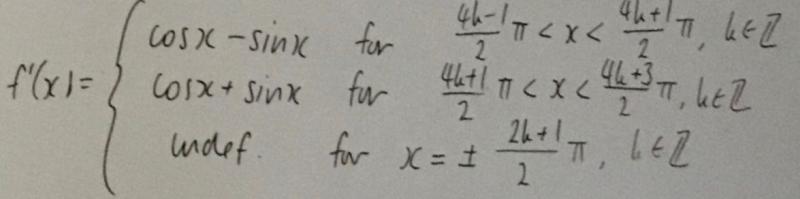 f'(x) = { cosx - sinx for (4k-1)/2 π < x < (4k+1)/2 π, k∈ℤ
cosx + sinx for (4k+1)/2 π < x < (4k+3)/2 π, k∈ℤ
undef. for x = ± (2k+1)/2 π, k∈ℤ